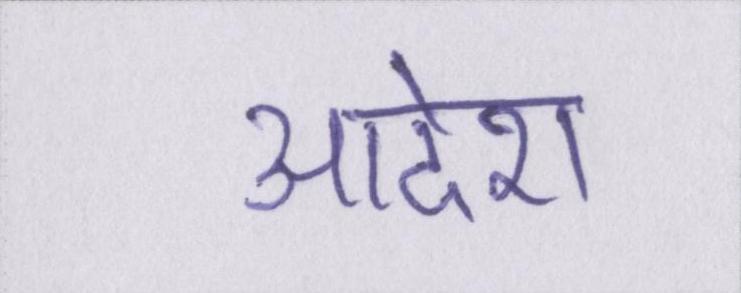 आदेश